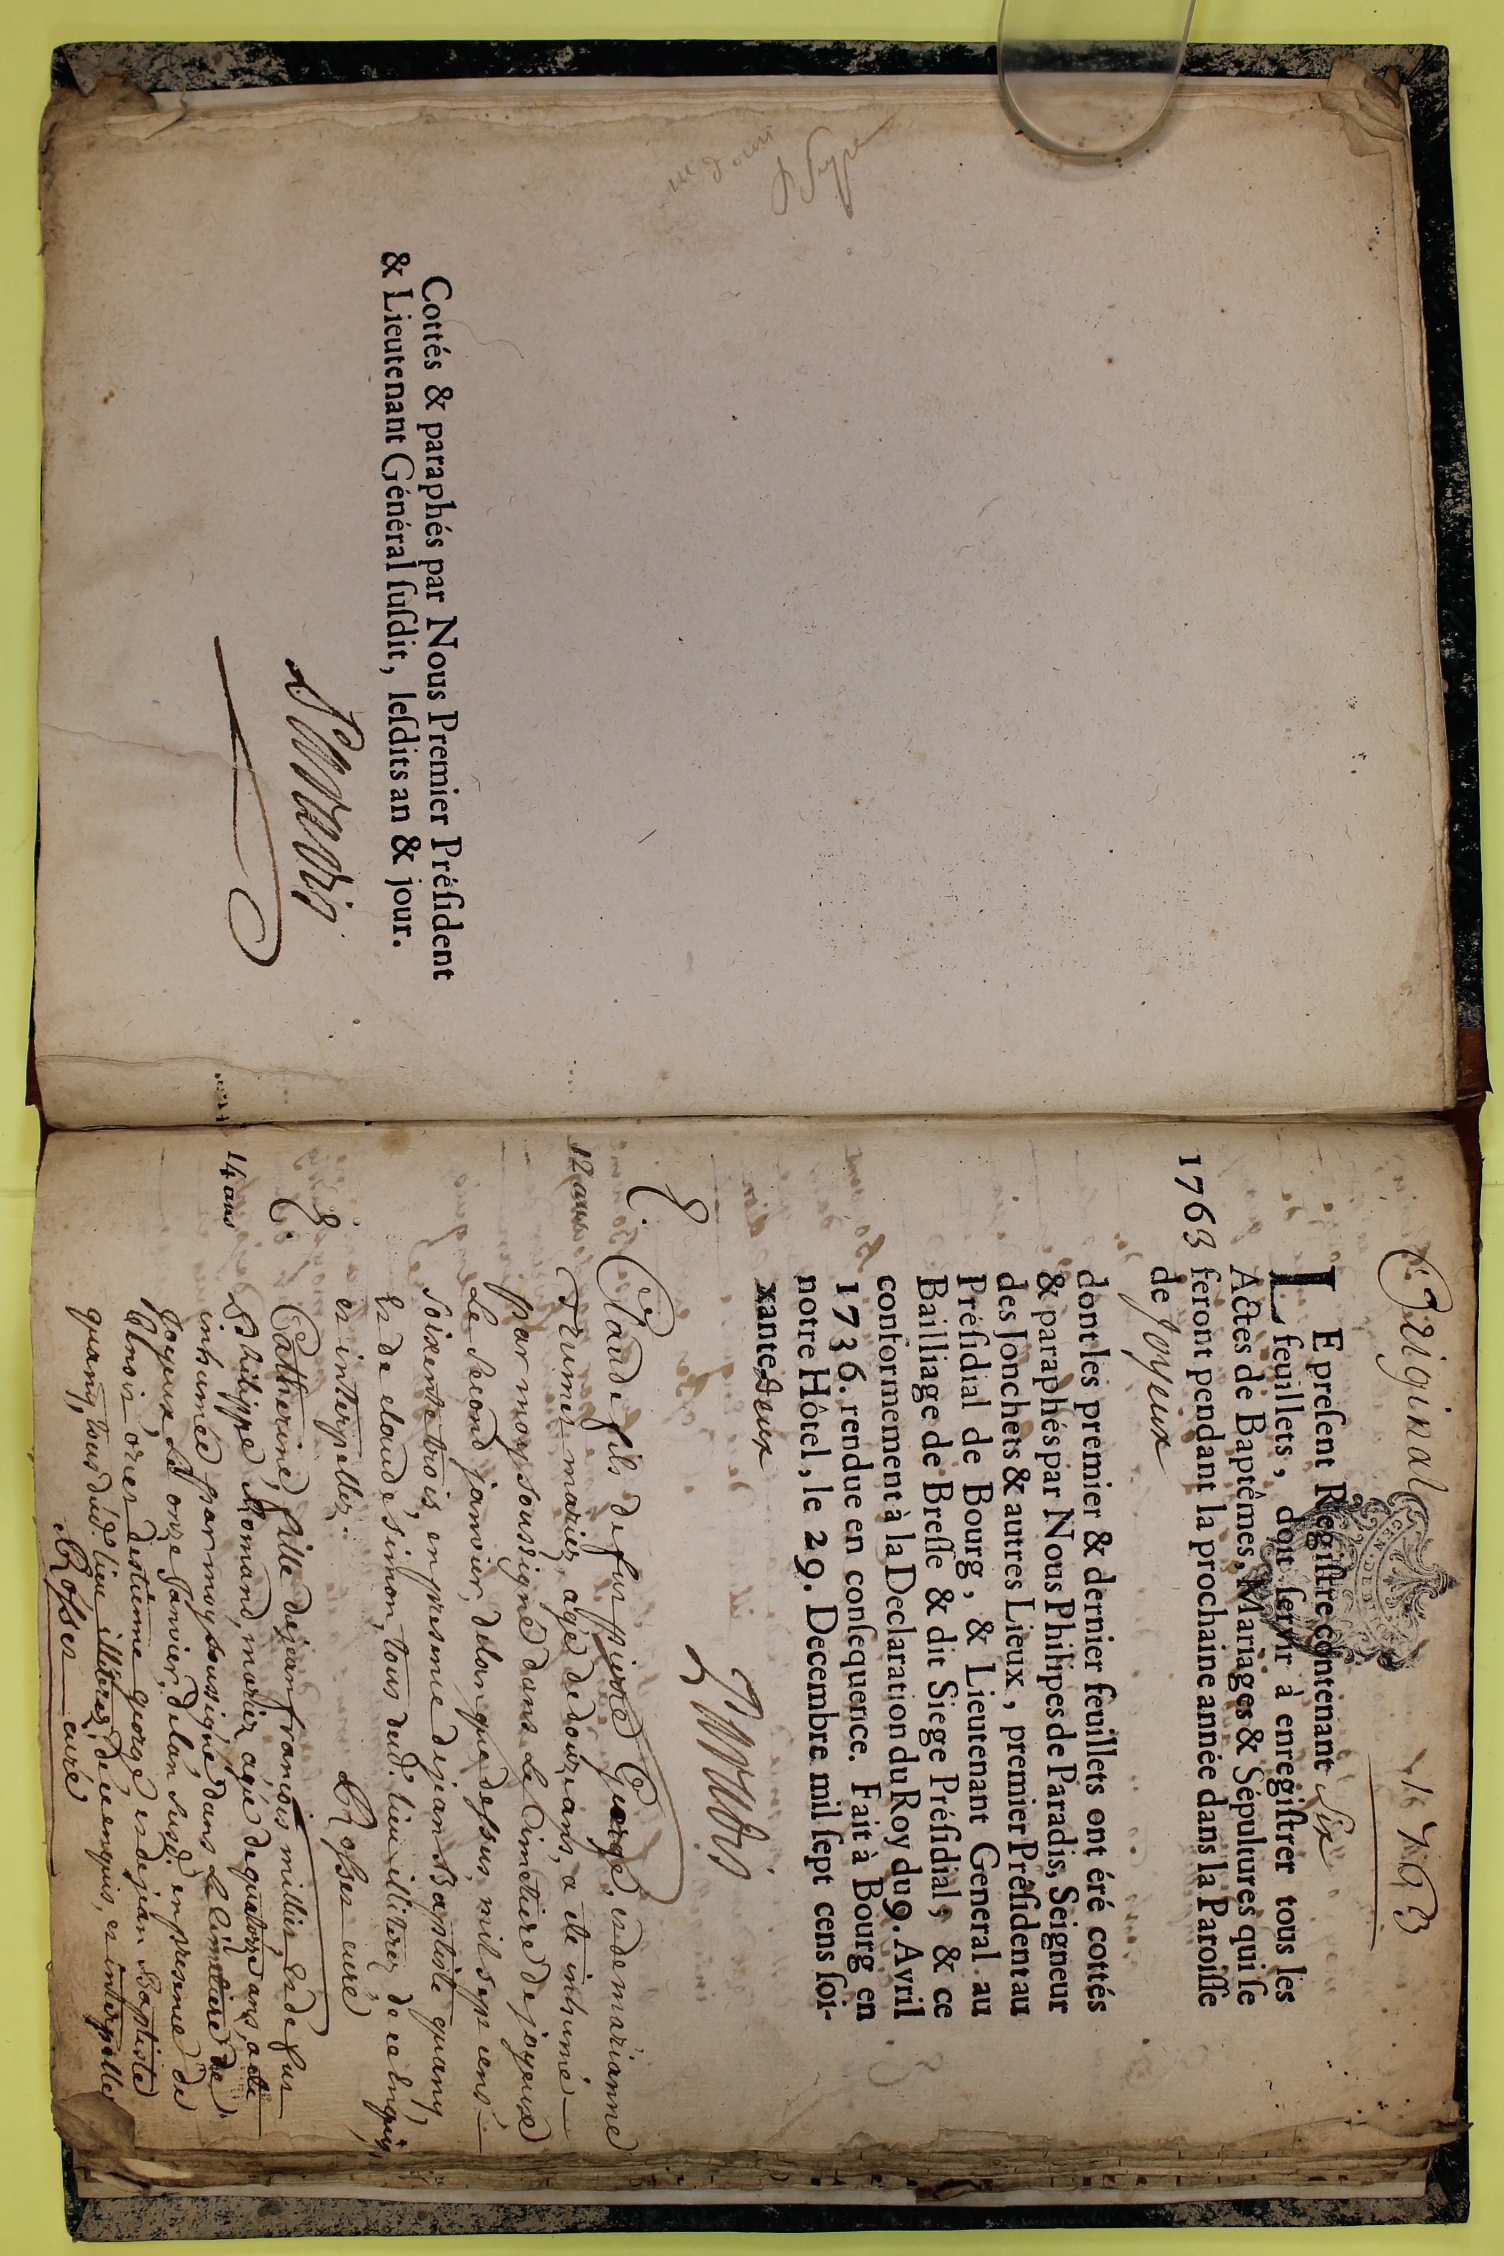 Cottés & paraphés par Nous Premier Préſident
& Lieutenant Général ſuſdit, leſdits an & jour.
Original
1763
LE preſent Regiſtre contenant Six
feuillets, doit ſervir à enregiſtrer tous les
Actes de Baptêmes, Mariages & Sépultures qui ſe
1763 feront pendant la prochaine année dans la Paroiſſe
de Joyeux
dont les premier & dernier feuillets ont éré cottés
& paraphés par Nous Philipes de Paradis, Seigneur
des Jonchets & autres Lieux, premier Préſident au
Préſidial de Bourg, & Lieutenant General au
Bailliage de Breſſe & dit Siege Préſidial, & ce
conformement à la Declaration du Roy du 9. Avril
1736. rendue en conſequence. Fait à Bourg en
notre Hôtel, le 29. Decembre mil ſept cens ſoi-
xante Deux
Claude fils de fut pierre George, et de marianne
12 ans
marier, agé de douze ans, a eté inhumé
par moy soussigné dans le Cimetiere de joyeux
Le second janvier, de lan que dessus, mil sept cens
soixente trois, en presence de jean Baptiste quany,
et de claude simon, tous dud. lieu illiterez de ce enquis
et interpellez.
Rosset curé
Catherine, fille de jean françois millier et de fut
14 ans
Philippe Romand, mariez, agée de quatorze ans, a eté
inhumée par moy soussigné dans le Cimetiere de
joyeux, Le onze Janvier, de lan susd. en presence de
destienne George, et de jean Baptiste
quany, tous dud. lieu illiterez, de ce enquis, et interpellez
Rosset curé